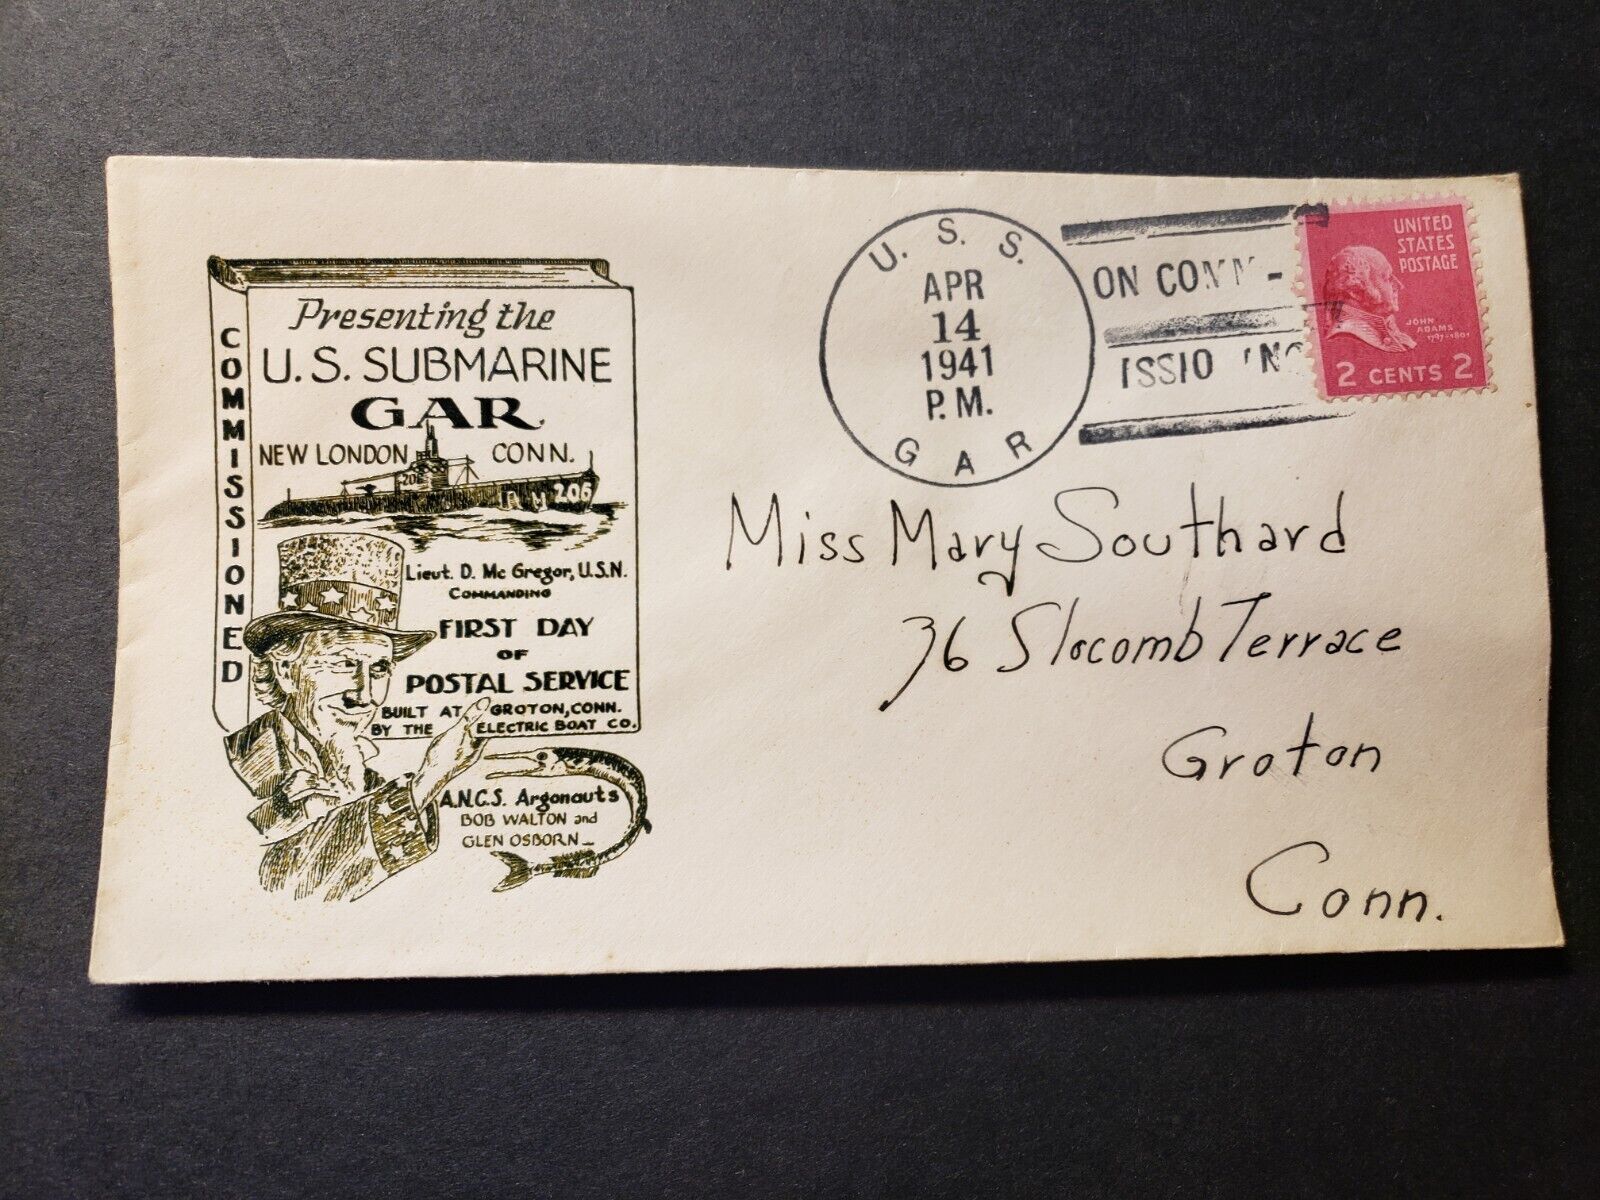 COMMISSIONED
Presenting the
U.S. SUBMARINE
GAR
NEW LONDON CONN.
206
206
Lieut. D. Mc Gregor, U.S.N.
COMMANDING
FIRST DAY
OF
POSTAL SERVICE
BUILT AT GROTON, CONN.
BY THE ELECTRIC BOAT CO.
A.N.C.S. Argonauts
BOB WALTON and
GLEN OSBORN
U. S. S.
APR
14
1941
P.M.
GAR
ON COMM-
ISSIONING
UNITED
STATES
POSTAGE
JOHN
ADAMS
1797-1801
2 CENTS 2
Miss Mary Southard
36 Slocomb Terrace
Groton
Conn.